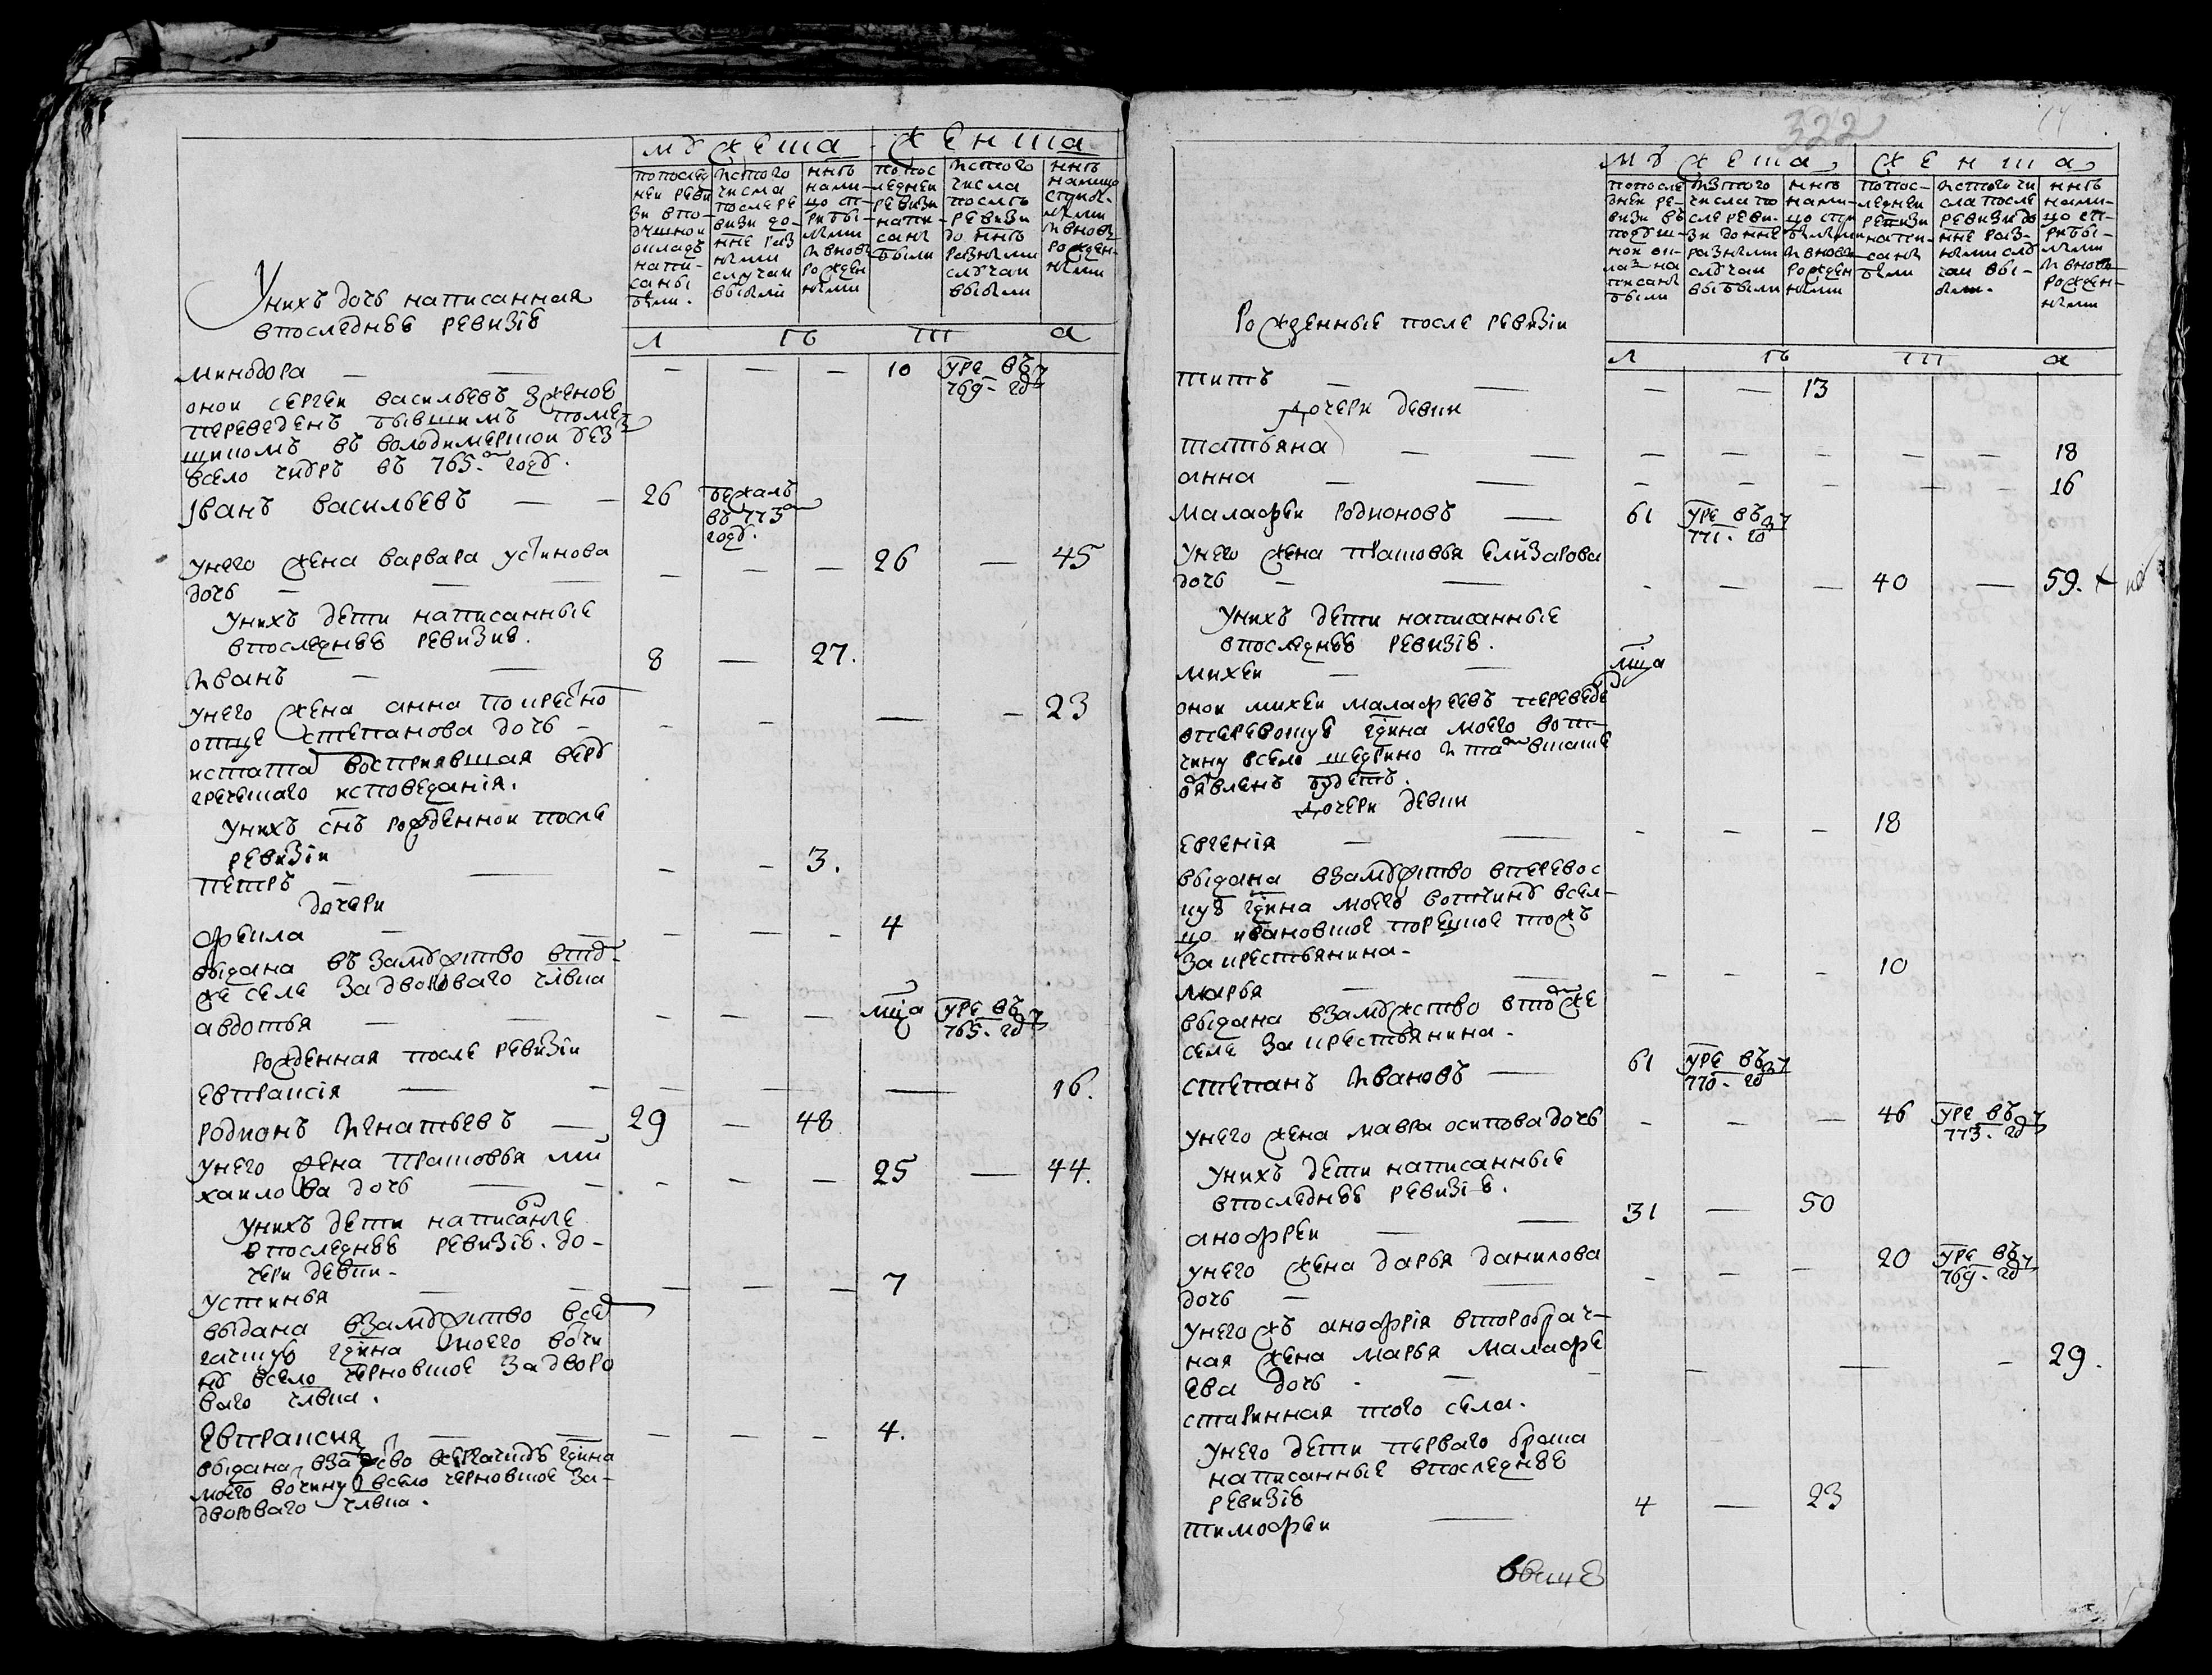 мужеска женска
попослед
ней реви
зи впо-
душной
окладъ
напи-
саны
были.
истого
числа
послере
визи до-
нне раз
ными
случаи
выбыли
ннѣ
нали-
цо сп-
рибы-
лыми
ивновь
рожден
ными
попос
ледней
ревизи
напи-
саны
были
истого
числа
послѣ
ревизи
до ннѣ
разными
случаи
выбыли
ннѣ
налицо
ивновь
рожден-
ными
Унихъ дочь написанная
впоследнѣе ревизіе
л ѣ т а
минодора — — — — — 10 уре въ
769 - гду
оной сергеи васильевъ зженою
переведенъ бывшимъ поме
щикомъ въ володимерской уез
всело въ 765 году.
Іванъ васильевъ — — 26 бежалъ
въ 773
году.
унего жена варвара устинова
дочь — — — — — 26 — 45
Унихъ дети написанные
впоследнѣе ревизие.
Иванъ — — 8 — 27.
унего жена анна покрестно
отце степанова дочь — — — — — 23
восприявшая веру
греческаго исповеданія.
Унихъ снъ рожденной после
ревизіи
петръ — — — — 3.
дочери
фекла — — — — — 4
выдана въ замужство втом-
же селе задвороваго члвка
авдотья — — — — — мца уре въ
765 - гду
рожденная после ревизіи
евпраксія — — — — — 16.
родионъ Игнатьевъ — 29 — 48
унего жена прасковья ми
хаилова дочь — — — — — 25 — 44.
Унихъ дети написаные
впоследнѣе ревизіе. до-
чери девки-
устинья — — — — — 7
выдана взамужство всер
гачскую гдина моего вотчи
ну всело черновское задворо
ваго члвка.
Евпраксия — — — — — 4.
выдана взамужство всергачскую гдина
моего вочину всело черновское за-
двороваго члвка.
322
мужеска женска
попосле
дней ре-
визи въ
подуш-
ной ок-
ладъ на
писаны
были
изтого
числа по
сле реви-
зи донне
разными
случаи
выбыли
ннѣ
нали-
ивновь
рожден
ными
попос-
ледней
ревизи
напи-
саны
были
истого чи
сла после
ревизи до
нне раз-
ными слу
чаи вы-
были.
ннѣ
нали-
цо сп-
рибы-
лыми
ивновь
рожден-
ными
Рожденные после ревизіи
л ѣ т а
титъ — — — — 13
Дочери девки
татьяна — — — — — — — 18
анна — — — — — — 16
Малафеи родионовъ — 61 уре въ
771 - гду
унего жена прасковья елизарова
дочь — — — — — 40 — 59.
Унихъ дети написанные
впоследнѣе ревизіе.
михеи — — мца
оной михеи малафеевъ переведе
вперевоскуе гдина моего вот-
чину всело щедрино и тамъ всказке
объявленъ будетъ.
Дочери девки
евгенія — — — — — 18
выдана взамужство вперевос
куе гдина моего вотчину всел-
цо ивановское порецкое тожъ
закрестьянина-
марья — — — — — 10
выдана взамужство втомже
селе закрестьянина-
степанъ Ивановъ — 61 уре въ
770 - гду
унего жена мавра осипова дочь — — — 46 уре въ
773 - гду
Унихъ дети написанные
впоследнѣе ревизіе.
анофреи — — 31 — 50
унего жена дарья данилова
дочь — — — — — 20 уре въ
769 - гду
унегожъ анофрія второбрач-
ная жена марья малафе
ева дочь - — — — — — 29.
старинная того села.
Унего дети перваго брака
написанные впоследнѣе
ревизіе
тимофеи — 4 — 23